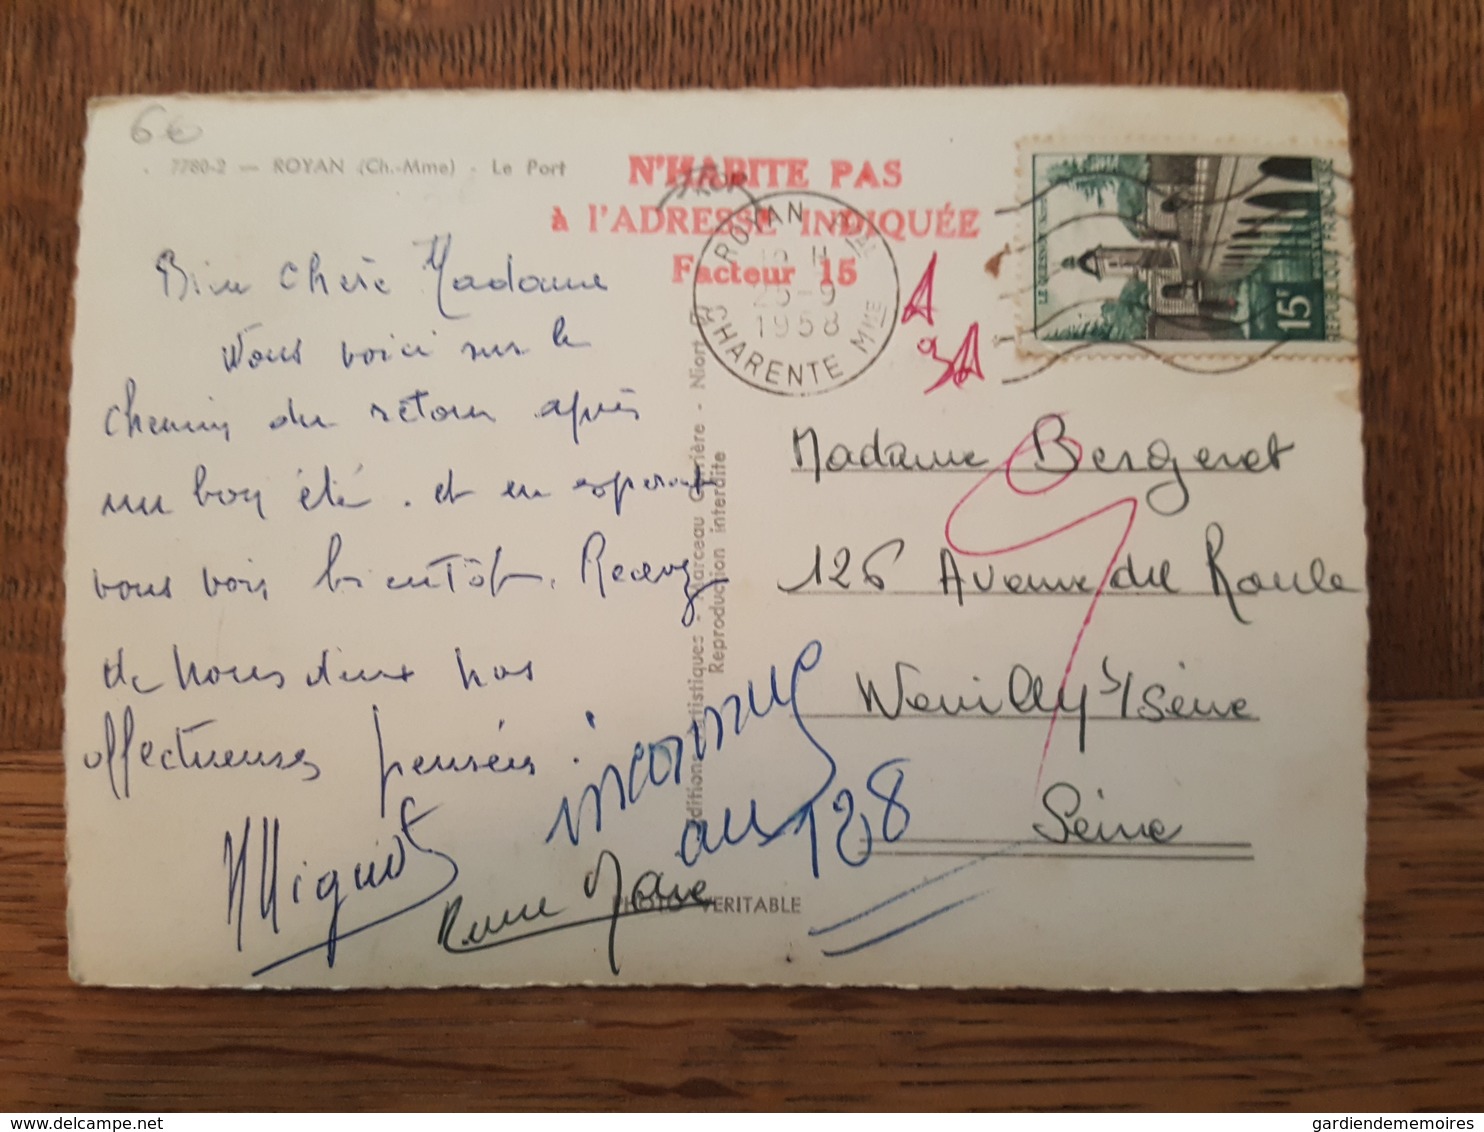 6€
7780-2 — ROYAN (Ch.-Mme) - Le Port
N'HABITE PAS
à l'ADRESSE INDIQUÉE
Facteur 15
ROYAN
25-9
1958
CHARENTE MME
LE QUESNOY
15F
POSTES
RÉPUBLIQUE FRANÇAISE
Bien chère Madame
Nous voici sur le
chemin du retour après
un bon été. et en esperant
vous voir bientôt. Recevez
de nous deux nos
affectueuses pensées.
Miquiot
Madame Bergeret
126 Avenue du Roule
Neuilly s/Seine
Seine
inconnu
au 128
Editions Artistiques - Marceau Carrière - Niort
Reproduction interdite
PHOTO VERITABLE
gardiendememoires@delcampe.net